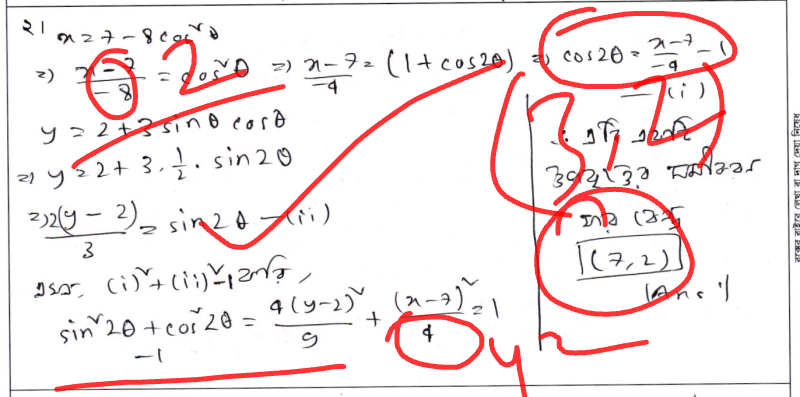 ২১ x = 7 - 8cos²θ
⇒ (x-7)/-8 = cos²θ ⇒ (x-7)/-4 = (1+cos2θ) ⇒ cos2θ = (x-7)/-4 - 1 —(i)
y = 2+3sinθ cosθ
⇒ y = 2+3.1/2. sin2θ
⇒ 2(y-2)/3 = sin2θ —(ii)
(i)²+(ii)²
sin²2θ + cos²2θ = 4(y-2)²/9 + (x-7)²/4 = 1
-1
∴ এটি একটি
উপবৃত্তের সমীকরণ
যার কেন্দ্র
(7,2)
(Ans:)
2
3,2
y
বক্সের বাইরে লেখা বা দাগ দেয়া নিষেধ